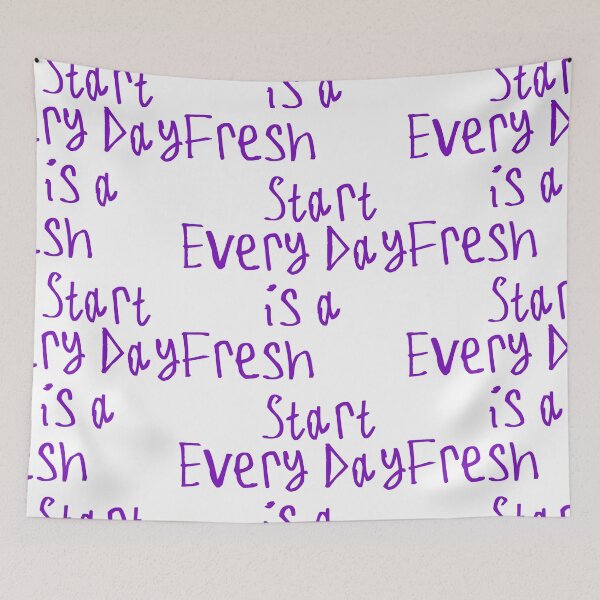 Start is a Start
ry DayFresh Every D
is a Start is a
sh Every DayFresh
Start is a Start
ry DayFresh Every D
is a Start is a
sh Every DayFresh
Start is a Star